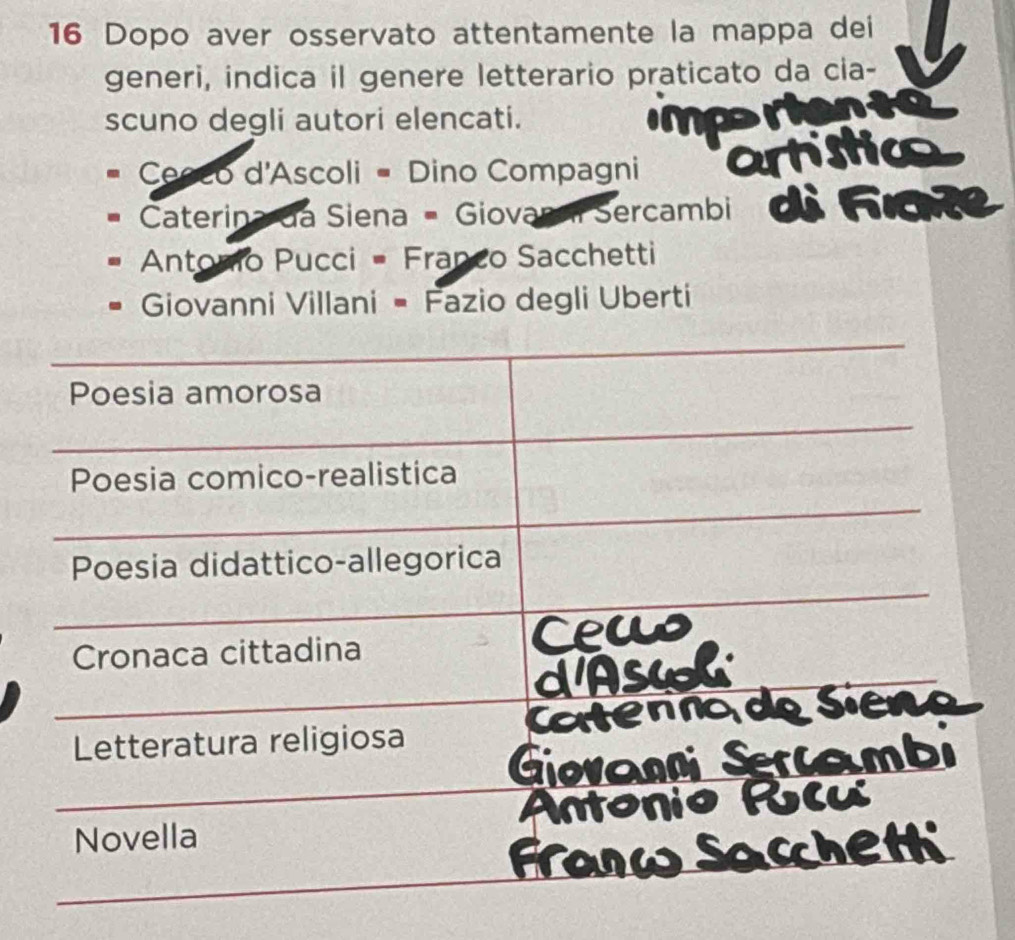 16 Dopo aver osservato attentamente la mappa dei
generi, indica il genere letterario praticato da cia-
scuno degli autori elencati.
importante
artistica
di Firenze
▪ Cecco d'Ascoli ▪ Dino Compagni
▪ Caterina da Siena ▪ Giovanni Sercambi
▪ Antonio Pucci ▪ Franco Sacchetti
▪ Giovanni Villani ▪ Fazio degli Uberti
Poesia amorosa
Poesia comico-realistica
Poesia didattico-allegorica
Cronaca cittadina
Cecco
d'Ascoli
Letteratura religiosa
Caterina da Siena
Giovanni Sercambi
Novella
Antonio Pucci
Franco Sacchetti